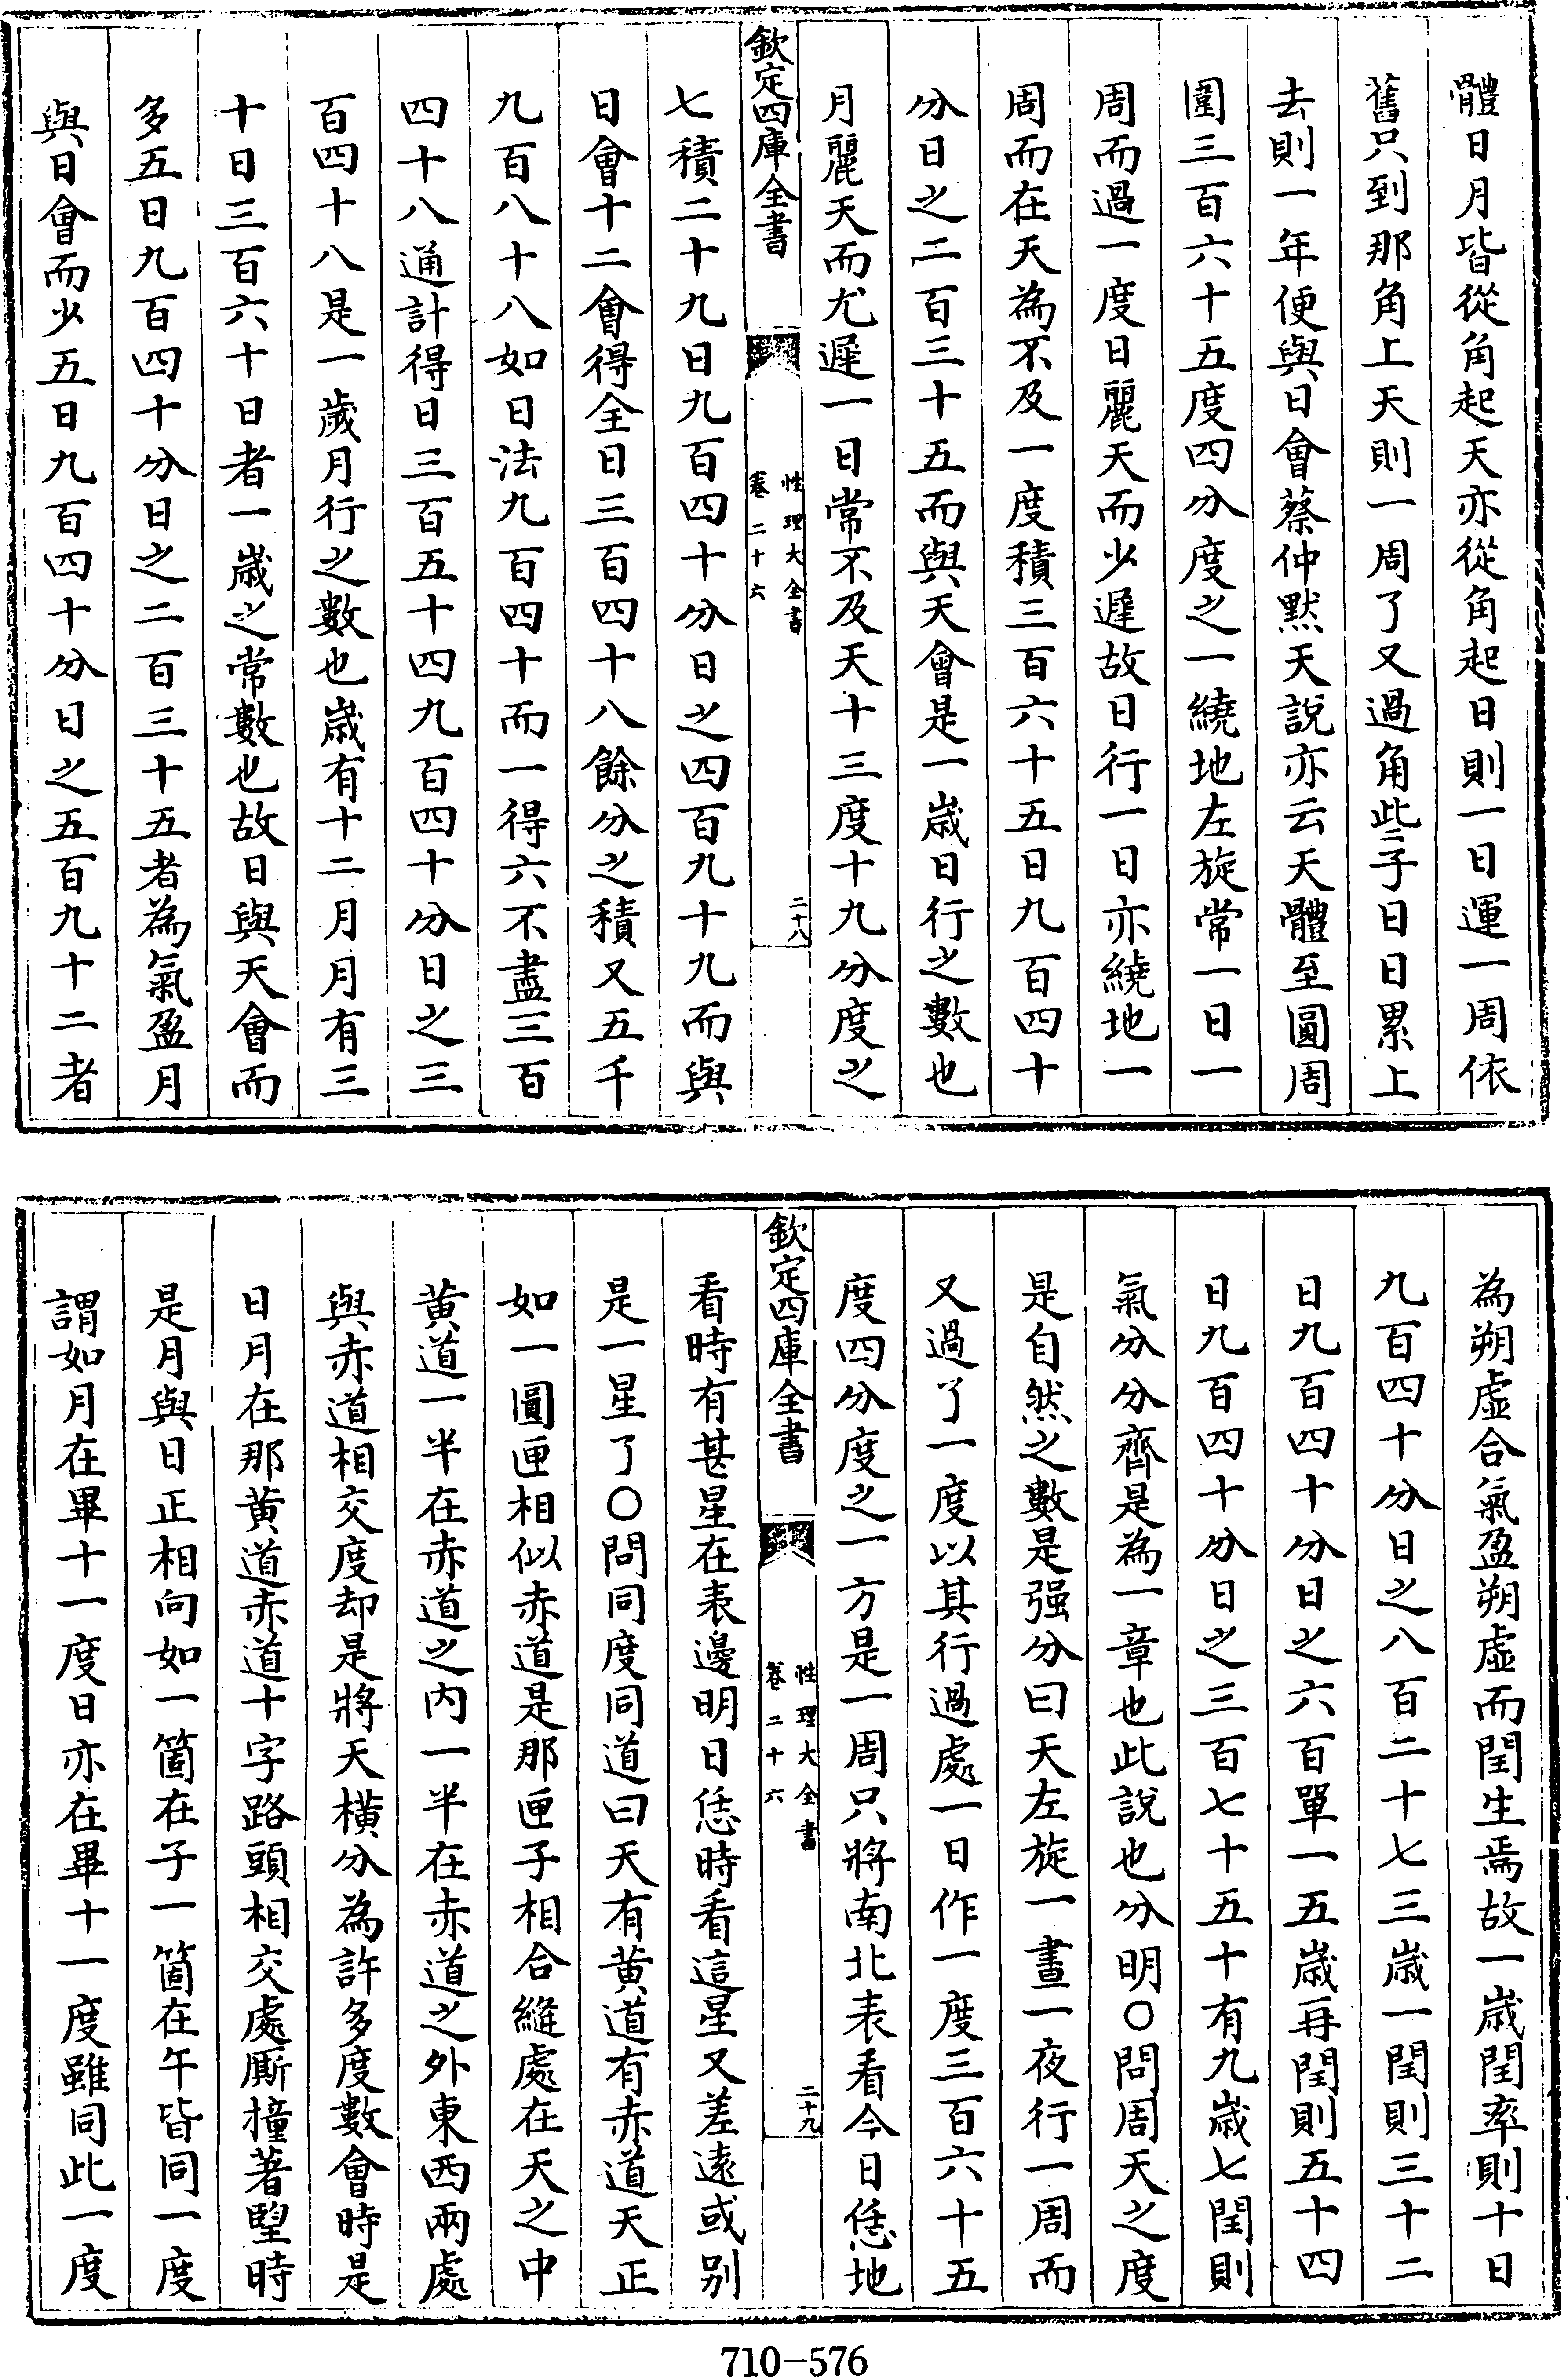 體日月皆從角起天亦從角起日則一日運一周依
舊只到那角上天則一周了又過角些子日日累上
去則一年便與日會蔡仲黙天說亦云天體至圓周
圍三百六十五度四分度之一繞地左旋常一日一
周而過一度日麗天而少遲故日行一日亦繞地一
周而在天為不及一度積三百六十五日九百四十
分日之二百三十五而與天會是一歲日行之數也
月麗天而尤遲一日常不及天十三度十九分度之
欽定四庫全書
性理大全書
卷二十六
二十八
七積二十九日九百四十分日之四百九十九而與
日會十二會得全日三百四十八餘分之積又五千
九百八十八如日法九百四十而一得六不盡三百
四十八通計得日三百五十四九百四十分日之三
百四十八是一歲月行之數也歲有十二月月有三
十日三百六十日者一歲之常數也故日與天會而
多五日九百四十分日之二百三十五者為氣盈月
與日會而少五日九百四十分日之五百九十二者
為朔虛合氣盈朔虛而閏生焉故一歲閏率則十日
九百四十分日之八百二十七三歲一閏則三十二
日九百四十分日之六百單一五歲再閏則五十四
日九百四十分日之三百七十五十有九歲七閏則
氣分分齊是為一章也此說也分明○問周天之度
是自然之數是强分曰天左旋一晝一夜行一周而
又過了一度以其行過處一日作一度三百六十五
度四分度之一方是一周只將南北表看今日恁地
欽定四庫全書
性理大全書
卷二十六
二十九
看時有甚星在表邊明日恁時看這星又差遠或别
是一星了○問同度同道曰天有黄道有赤道天正
如一圓匣相似赤道是那匣子相合縫處在天之中
黄道一半在赤道之内一半在赤道之外東西兩處
與赤道相交度却是將天橫分為許多度數會時是
日月在那黄道赤道十字路頭相交處厮撞著望時
是月與日正相向如一箇在子一箇在午皆同一度
謂如月在畢十一度日亦在畢十一度雖同此一度
710-576